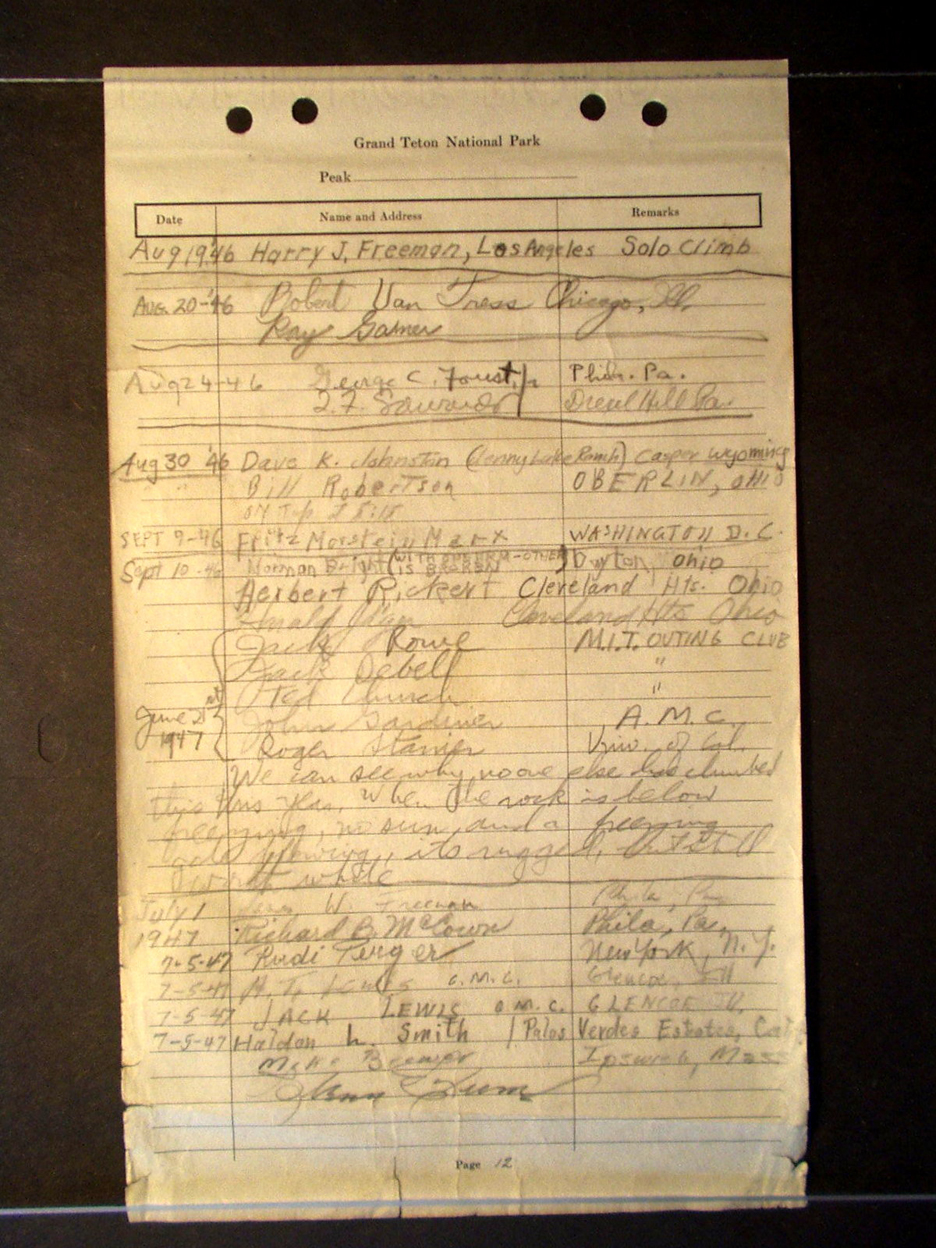 Grand Teton National Park
Peak
Date Name and Address Remarks
Aug 19 '46 Harry J. Freeman, Los Angeles Solo Climb
Aug. 20-'46 Robert Van Tress Chicago, Ill.
Ray Garner
Aug 24-46 George C. Foust, Jr Phila. Pa.
Drexel Hill Pa.
Aug 30 '46 Dave K. Johnston (Jenny Lake Ranch) Casper Wyoming
" " Bill Robertson OBERLIN, OHIO
SEPT 9-46 Fritz Morstein Marx WASHINGTON D.C.
Sept 10-46 Norman Bright (WITH ONE ARM-OTHER IS BROKEN) Dayton, Ohio
Herbert Rickert Cleveland Hts. Ohio
Cleveland Hts Ohio
Jack Rowe M.I.T. OUTING CLUB
Jack Debell "
Ted Church "
June 21st John Gardiner A.M.C.
1947 Roger Stanier Univ. of Cal.
We can see why no one else has climbed
this this year. When the rock is below
freezing, no sun, and a freezing
gale blowing, its rugged, but still
worth while
July 1 W. Freeman Phila, Pa.
1947 Richard B. McCown Phila, Pa.
7-5-47 Rudi Terger New York, N.Y.
7-5-47 Lewis C.M.C. Glencoe, Ill
7-5-47 JACK LEWIS C.M.C. GLENCOE Ill.
7-5-47 Haldon L. Smith / Palos Verdes Estates, Cal
Ipswich, Mass
Page 12